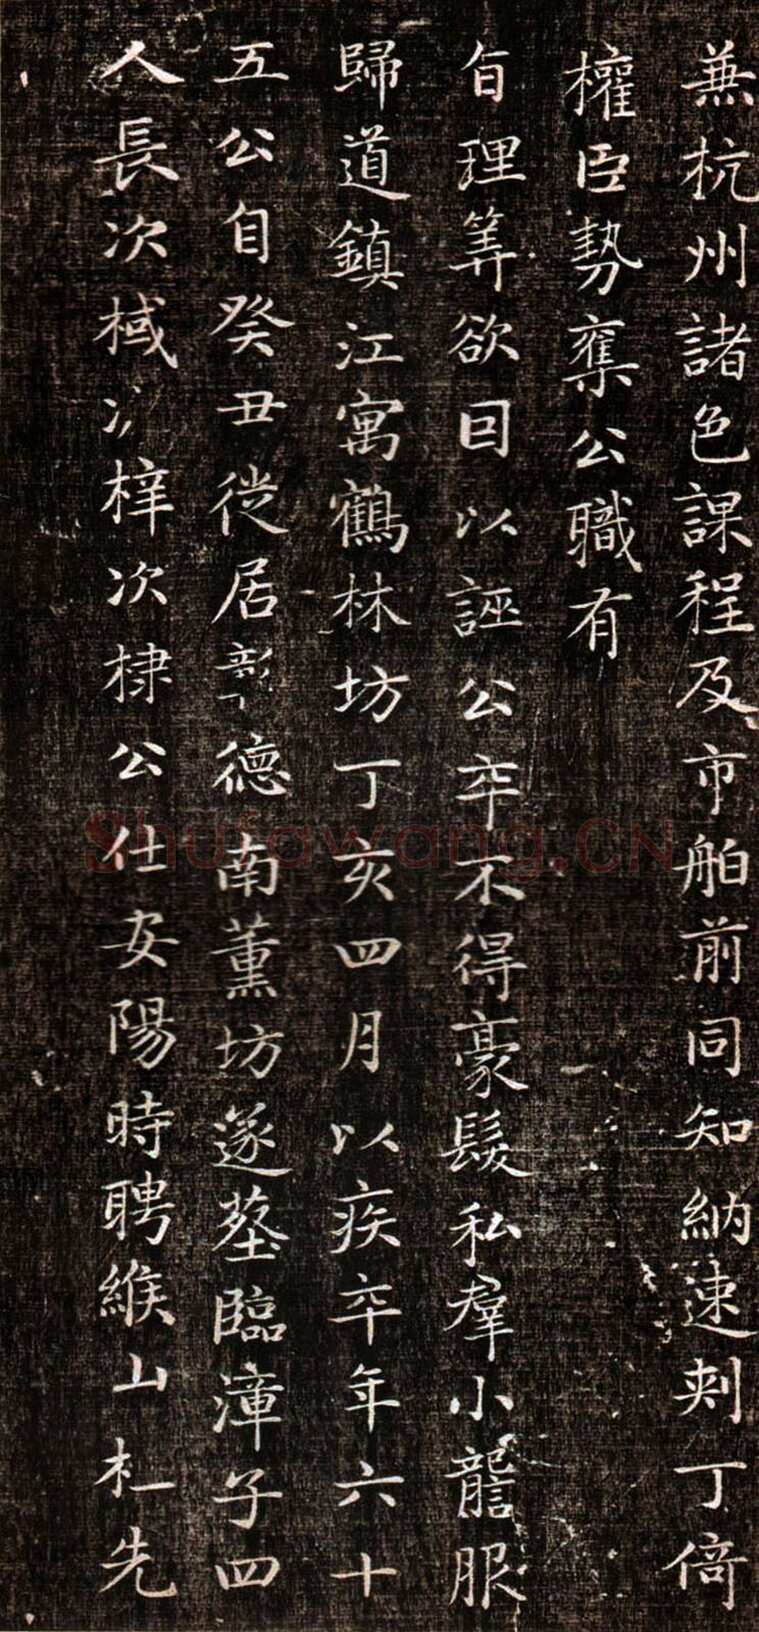 兼杭州諸色課程及市舶前同知納速剌丁倚
權臣勢奪公職有
旨理筭欲因以誣公卒不得豪髮私羣小讋服
歸道鎮江寓鶴林坊丁亥四月以疾卒年六十
五公自癸丑徙居彰德南薰坊遂葬臨漳子四
人長次棫次梓次棣公仕安陽時聘緱山杜先
Shufawang.CN